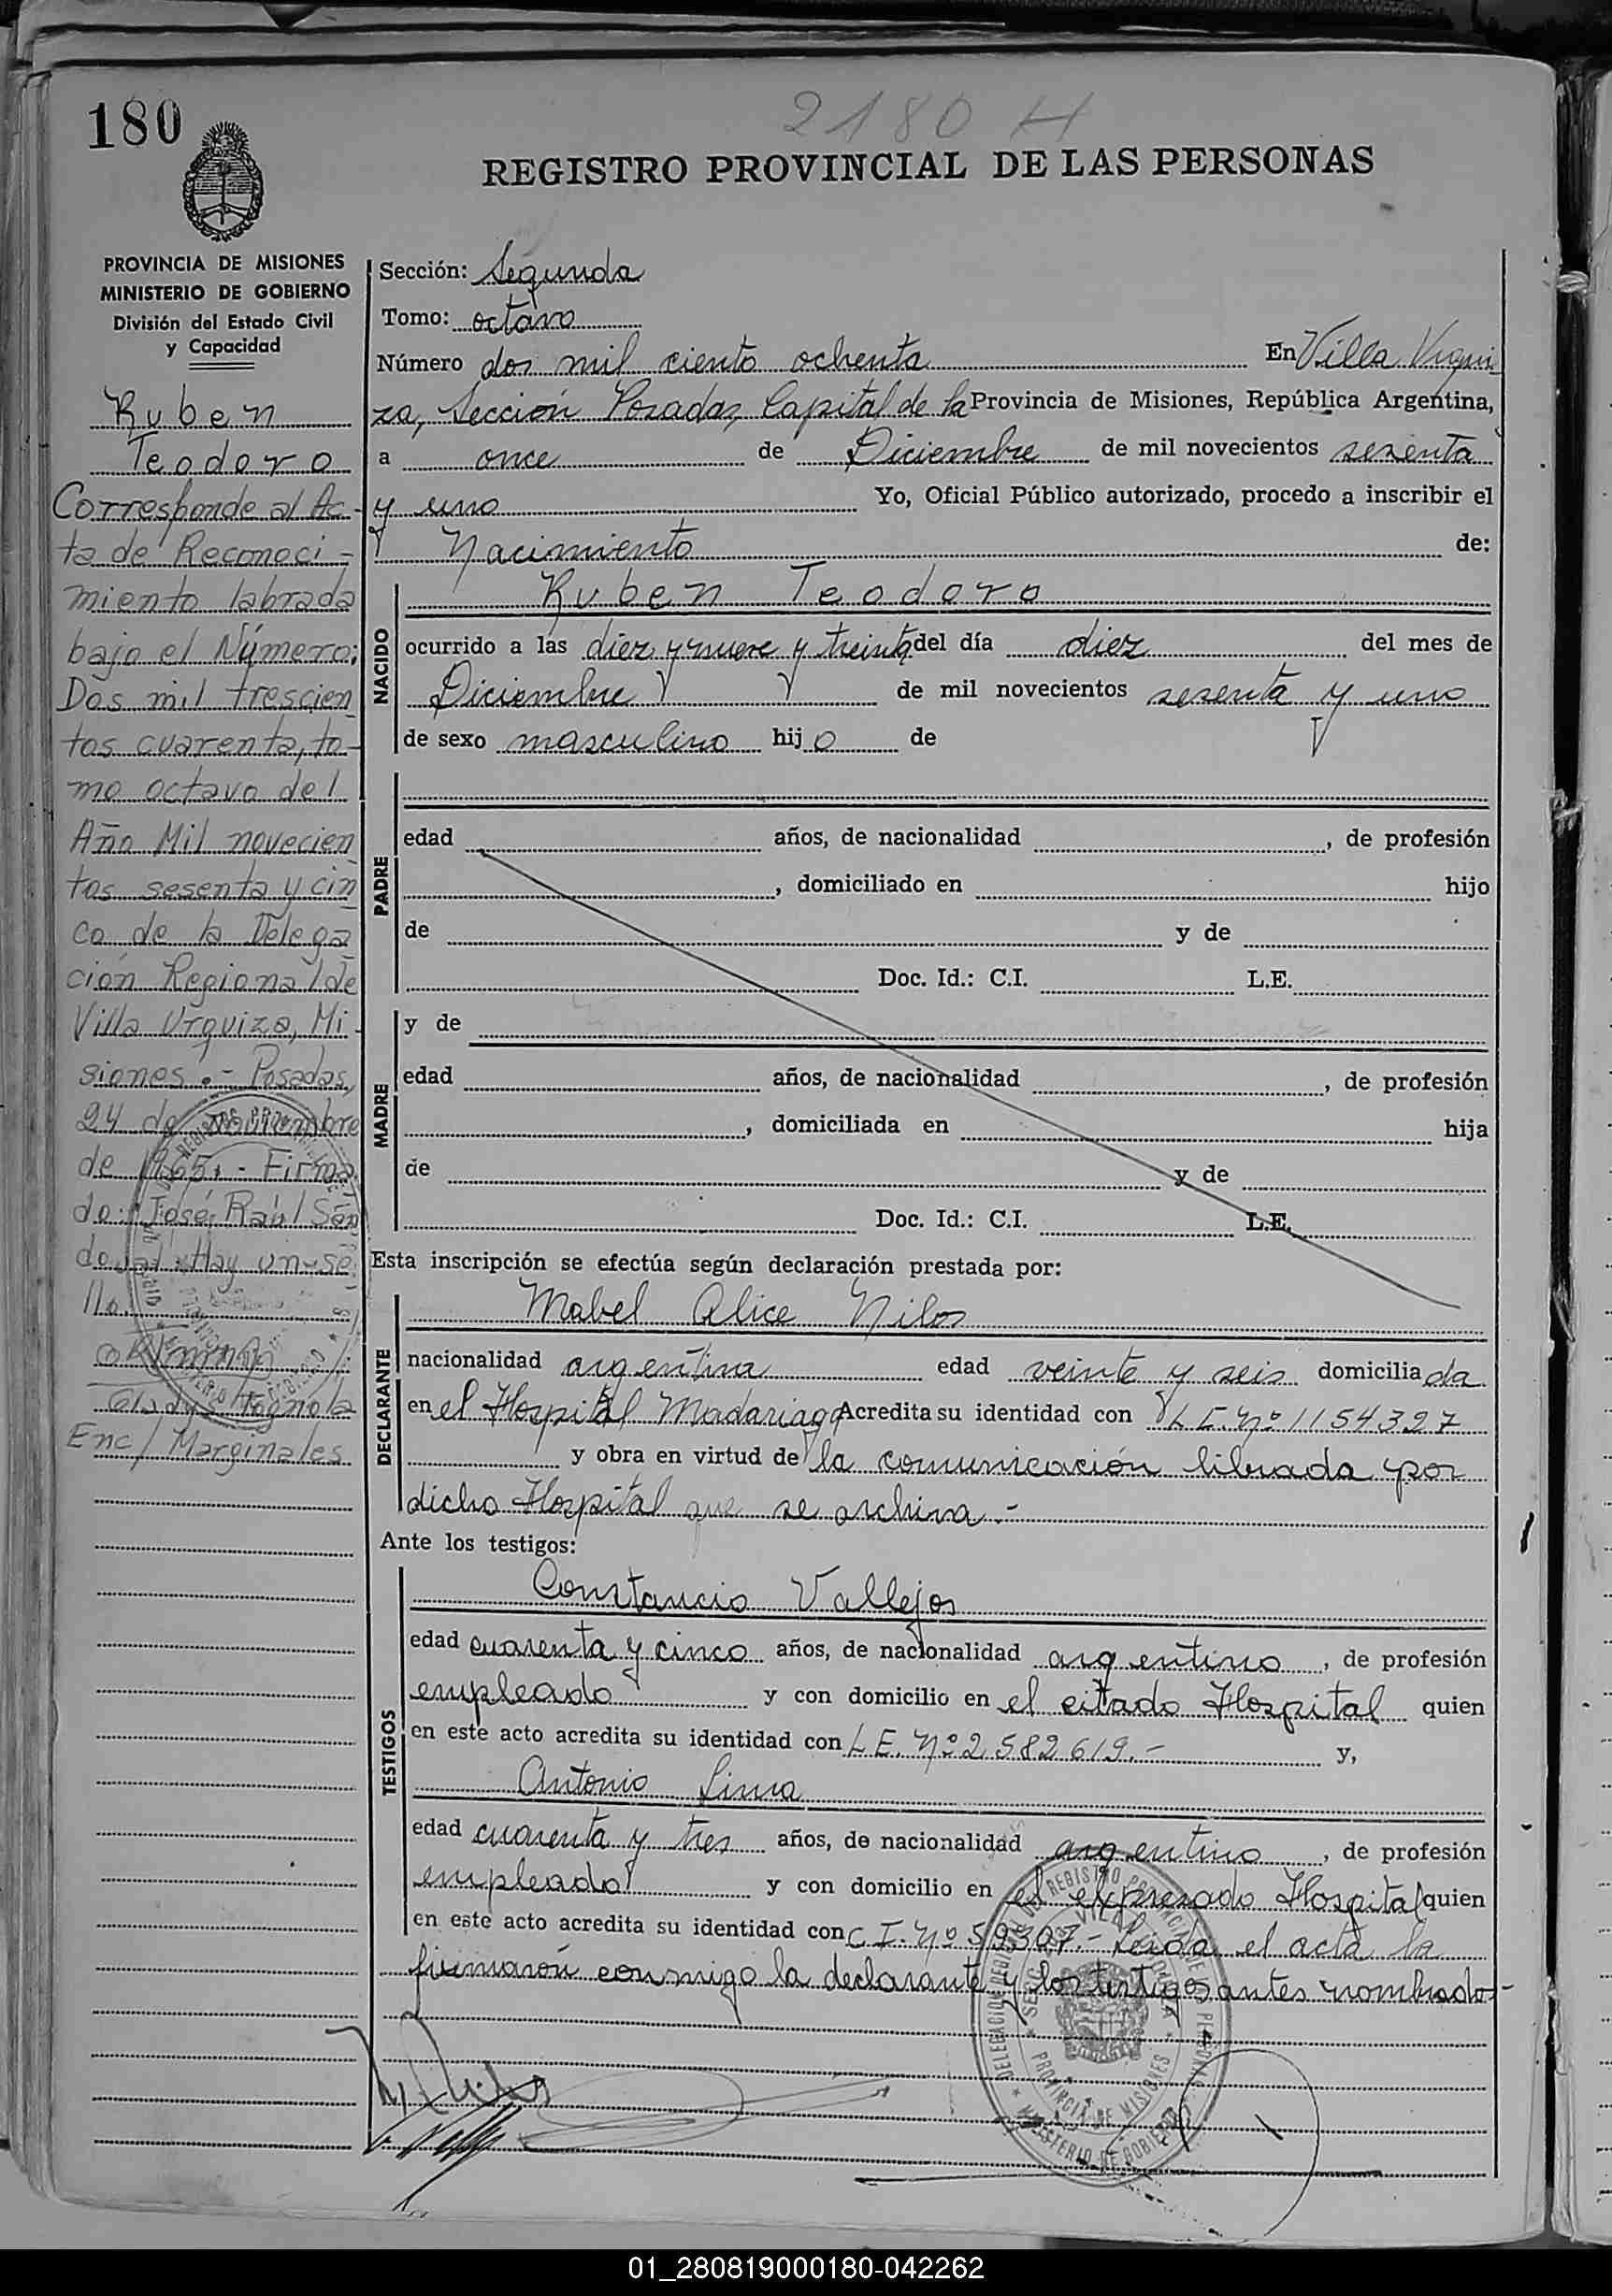 180
2180 H
REGISTRO PROVINCIAL DE LAS PERSONAS
PROVINCIA DE MISIONES
MINISTERIO DE GOBIERNO
División del Estado Civil
y Capacidad
Ruben
Teodoro
Corresponde al Ac-
ta de Reconoci-
miento labrada
bajo el Número:
Dos mil trescien
tos cuarenta, to-
mo octavo del
Año Mil novecien
tos sesenta y cin
co de la Delega
ción Regional de
Villa Urquiza, Mi-
siones.- Posadas,
24 de noviembre
de 1965.- Firma
do: José Raúl San
doval. Hay un se
llo.
Gladys
Enc/ Marginales
Sección: Segunda
Tomo: octavo
Número dos mil ciento ochenta En Villa Urqui
za, Sección Posadas, Capital de la Provincia de Misiones, República Argentina,
a once de Diciembre de mil novecientos sesenta
y uno Yo, Oficial Público autorizado, procedo a inscribir el
Nacimiento de:
NACIDO
Ruben Teodoro
ocurrido a las diez y nueve y treinta del día diez del mes de
Diciembre de mil novecientos sesenta y uno
de sexo masculino hijo de
PADRE
edad años, de nacionalidad , de profesión
, domiciliado en hijo
de y de
Doc. Id.: C.I. L.E.
MADRE
y de
edad años, de nacionalidad , de profesión
, domiciliada en hija
de y de
Doc. Id.: C.I. L.E.
Esta inscripción se efectúa según declaración prestada por:
DECLARANTE
Mabel Alice Nilos
nacionalidad argentina edad veinte y seis domiciliada
en el Hospital Madariaga Acredita su identidad con L.E. Nº 1154327
y obra en virtud de la comunicación librada por
dicho Hospital que se archiva.-
Ante los testigos:
TESTIGOS
Constancio Vallejos
edad cuarenta y cinco años, de nacionalidad argentino, de profesión
empleado y con domicilio en el citado Hospital quien
en este acto acredita su identidad con L.E. Nº 2582619.- y,
Antonio Lima
edad cuarenta y tres años, de nacionalidad argentino, de profesión
empleado y con domicilio en el expresado Hospital quien
en este acto acredita su identidad con C.I. Nº 59307.- Leida el acta la
firmaron conmigo la declarante y los testigos antes nombrados-
01_280819000180-042262